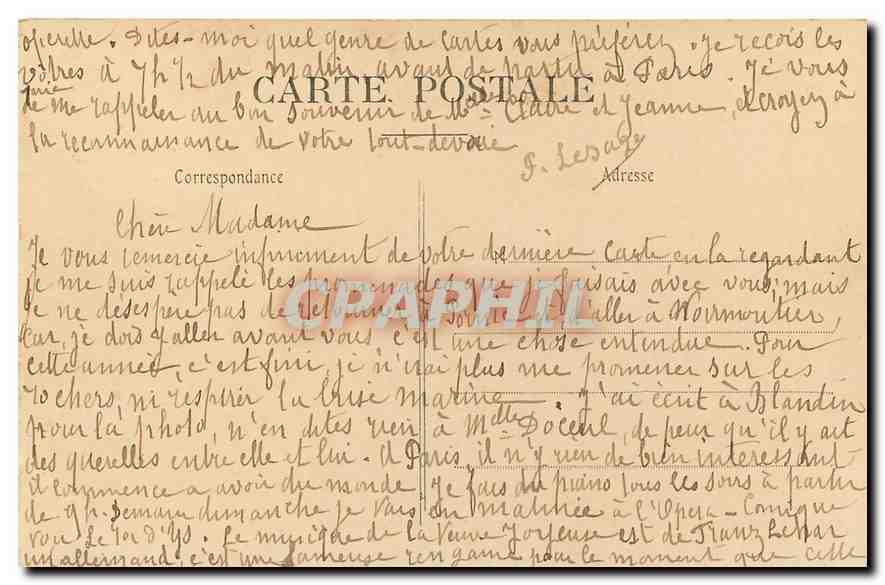 operette. Dites-moi quel genre de cartes vous préférez. je recois les
vôtres à 7h ½ du matin avant de partir à Paris. Je vous
prie de me rappeler au bon souvenir de Mlle Claire et Jeanne, et croyez à
CARTE POSTALE
la reconnaissance de votre tout-devoué
P. Lesage
Correspondance
Adresse
Chère Madame
Je vous remercie infiniment de votre dernière carte, en la regardant
je me suis rappelé les promenades que je faisais avec vous, mais
je ne désespère pas de retourner à Pornic et d'aller à Noirmoutier,
car, je dois y aller avant vous c'est une chose entendue. Pour
cette année, c'est fini, je n'irai plus me promener sur les
rochers, ni respirer la brise marine. J'ai écrit à Blandin
pour la photo, n'en dites rien à Mdlle Doceul, de peur qu'il y ait
des querelles entre elle et lui. A Paris, il n'y rien de bien interessant
il commence a avoir du monde. Je fais du piano tous les soirs à partir
de 9h. Demain dimanche je vais en matinée à l'Opera-Comique
voir Le roi d'Ys. Le musique de la Veuve Joyeuse est de Franz Lehar
un allemand, c'est une fameuse rengaine pour le moment que cette
CPAPHIL